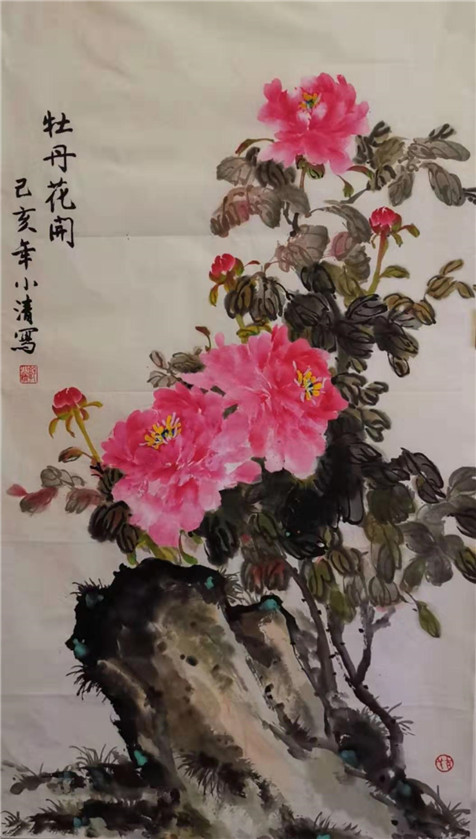 牡丹花開
己亥年小清寫